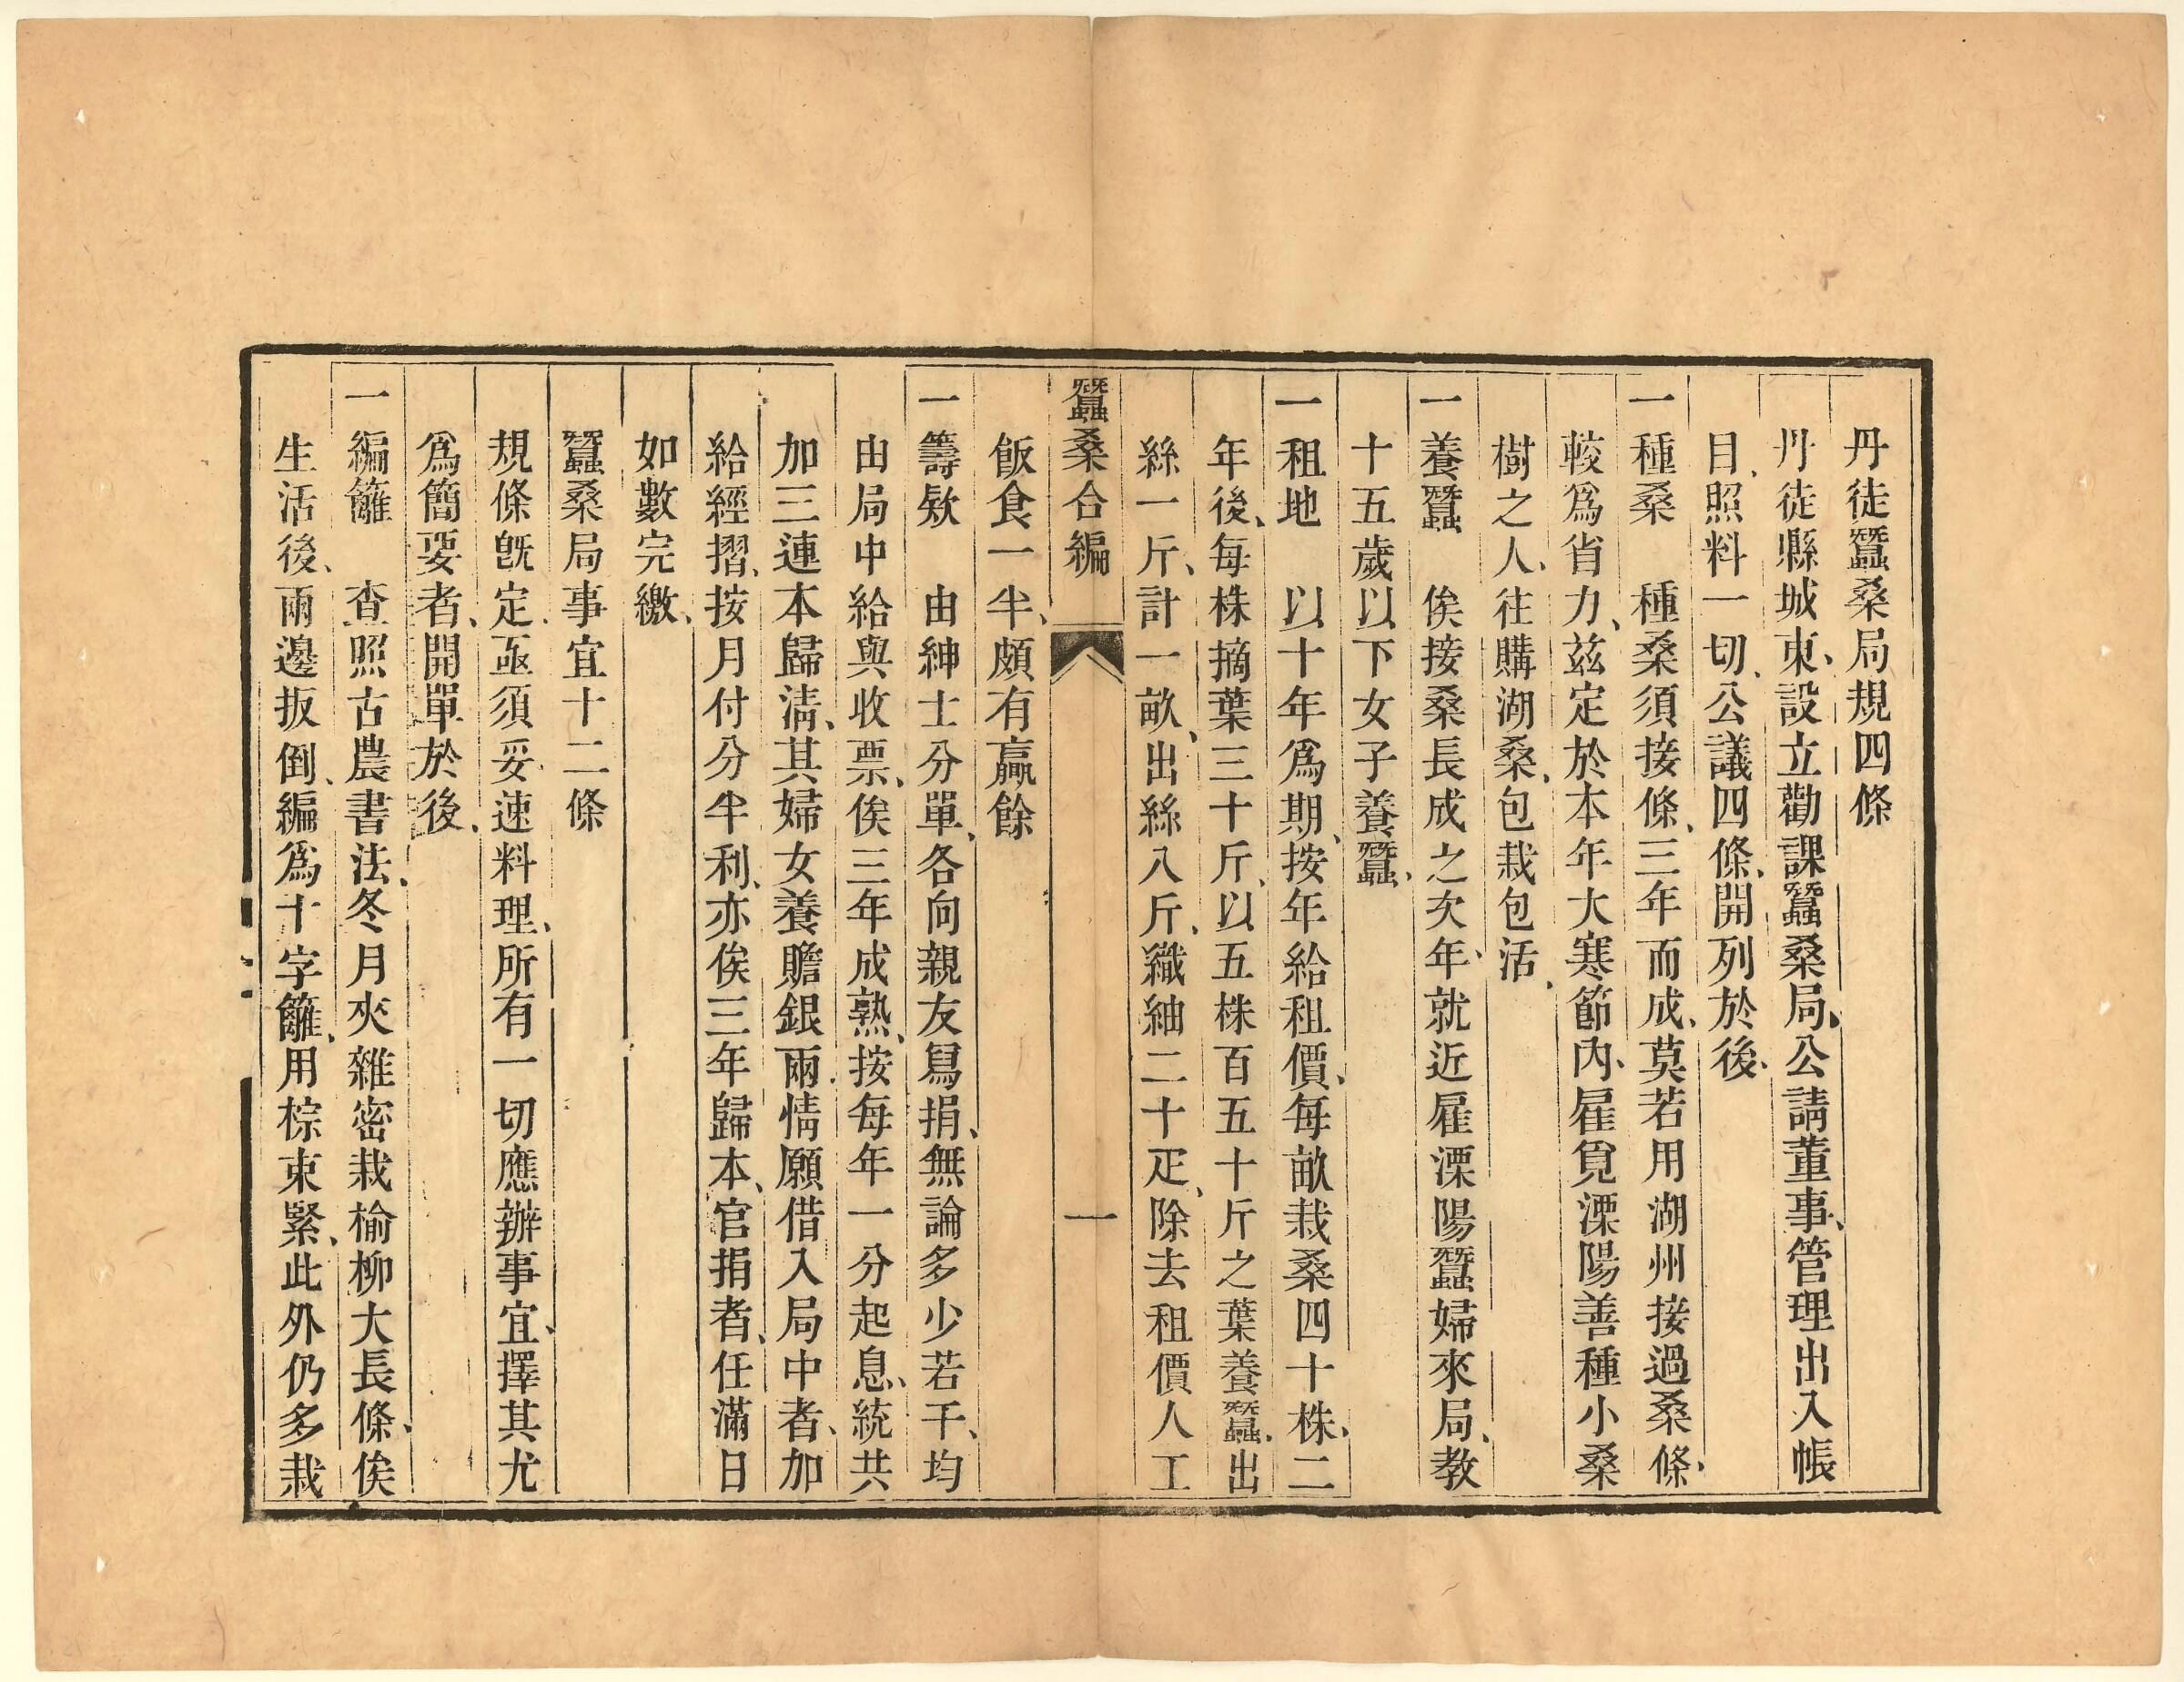 丹徒蠶桑局規四條
丹徒縣城東、設立勸課蠶桑局、公請董事、管理出入帳
目、照料一切、公議四條、開列於後、
一種桑　種桑須接條、三年而成、莫若用湖州接過桑條、
較爲省力、茲定於本年大寒節內、雇覓溧陽善種小桑
樹之人、往購湖桑、包栽包活、
一養蠶　俟接桑長成之次年、就近雇溧陽蠶婦來局、教
十五歲以下女子養蠶、
一租地　以十年爲期、按年給租價、每畝栽桑四十株、二
年後、每株摘葉三十斤、以五株百五十斤之葉養蠶、出
絲一斤、計一畝、出絲八斤、織紬二十疋、除去租價人工
蠶桑合編　一
飯食一半、頗有贏餘
一籌欵　由紳士分單、各向親友寫捐、無論多少若干、均
由局中給與收票、俟三年成熟、按每年一分起息、統共
加三連本歸淸、其婦女養贍銀兩、情願借入局中者、加
給經摺、按月付分半利、亦俟三年歸本、官捐者、任滿日
如數完繳、
蠶桑局事宜十二條
規條旣定、亟須妥速料理、所有一切應辦事宜、擇其尤
爲簡要者、開單於後、
一編籬　查照古農書法、冬月夾雜密栽榆柳大長條、俟
生活後、兩邊扳倒、編爲十字籬、用棕束緊、此外仍多栽